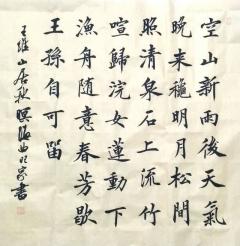 空山新雨後天氣
晚来穐明月松間
照清泉石上流竹
喧歸浣女蓮動下
漁舟随意春芳歇
王孫自可留
王維山居秋暝海曲書